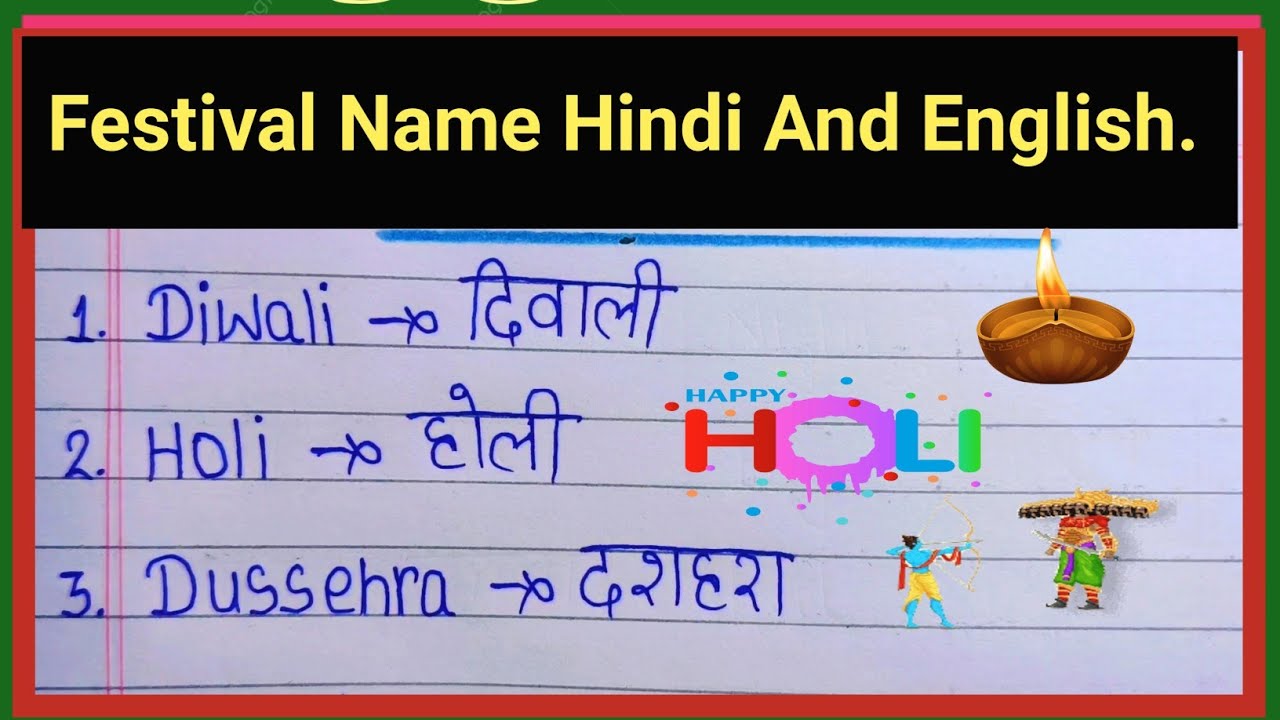 Festival Name Hindi And English.
1. Diwali → दिवाली
2. Holi → होली
HAPPY
HOLI
3. Dussehra → दशहरा